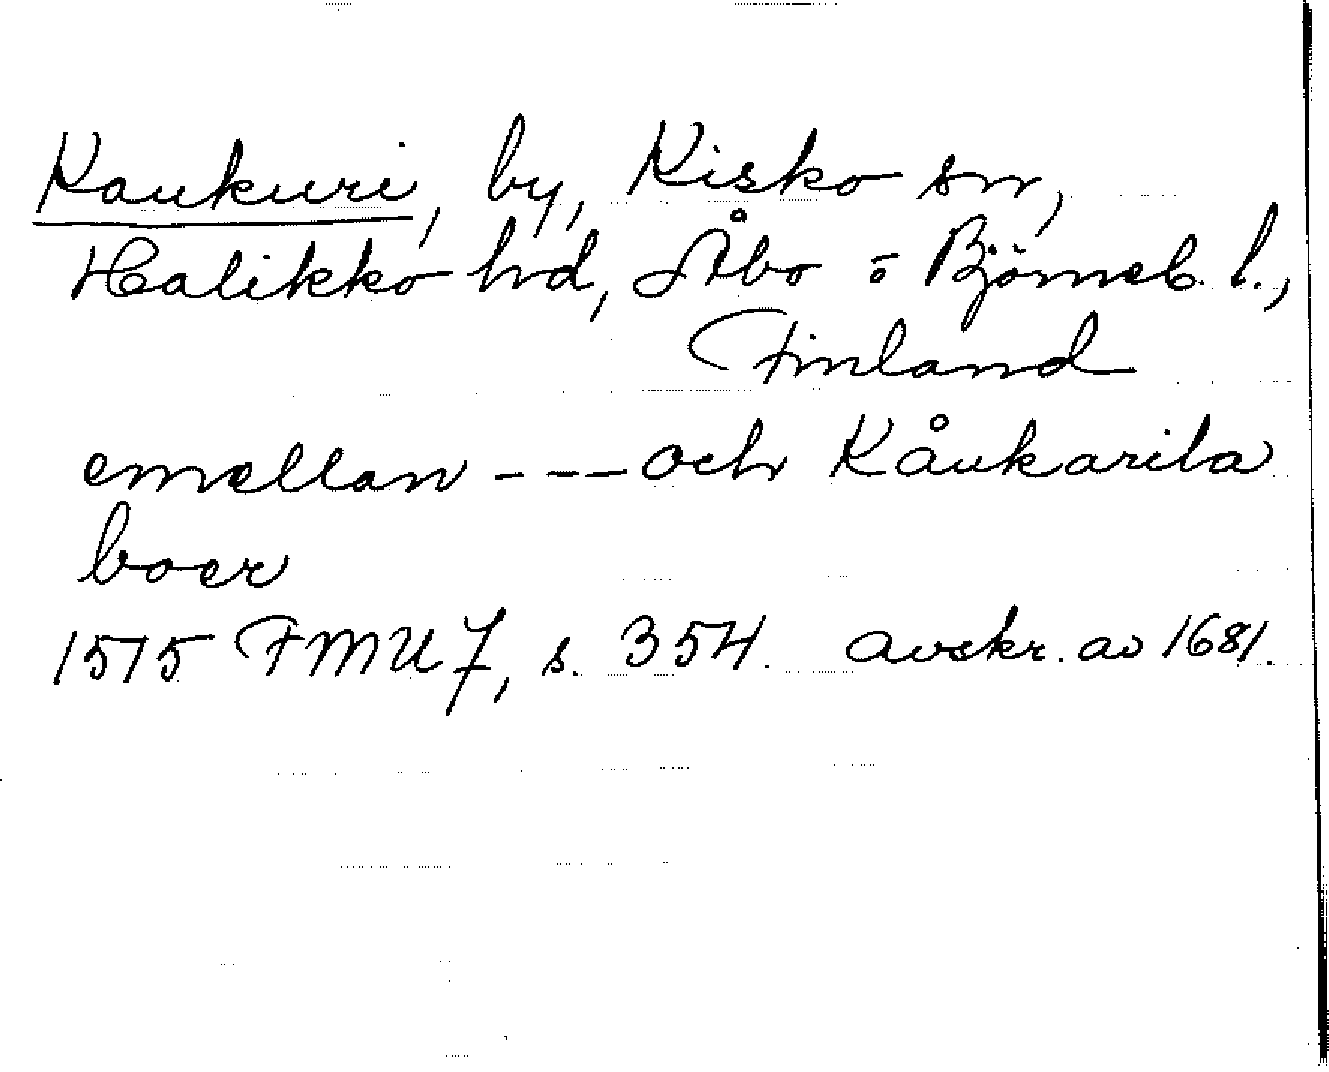 Kaukuri, by, Kisko sn,
Halikko hd, Åbo o Björneb. l.,
Finland
emellan - - - och Kåukarila
boer
1515 FMU 7, s. 354. avskr. av 1681.